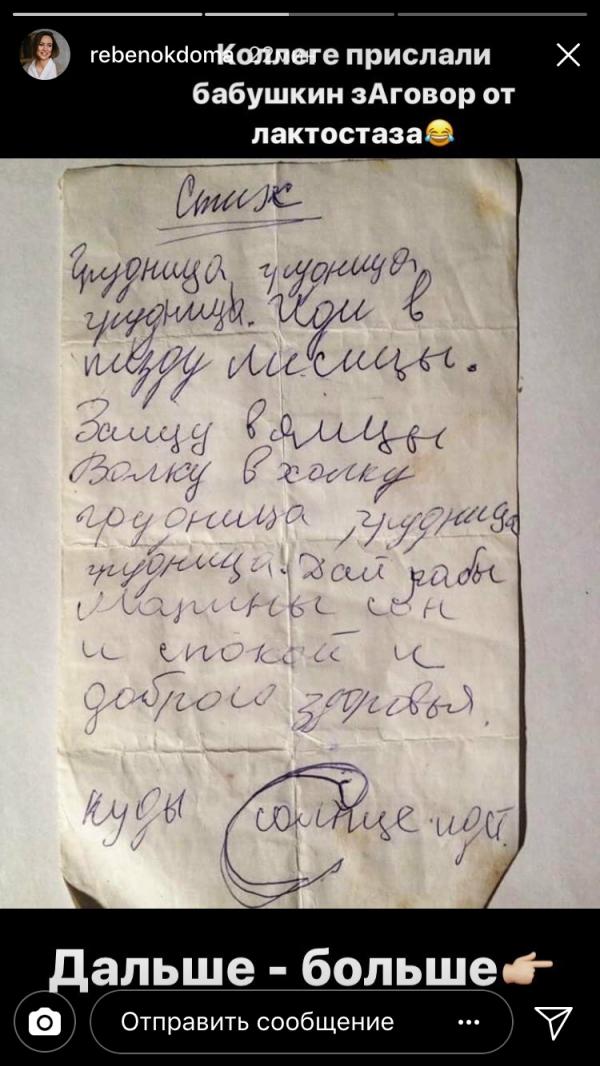 rebenokdoma 22 мин
Коллеге прислали
бабушкин зАговор от
лактостаза😂
Стих
Грудница, грудница,
грудница. Иди в
пизду лисицы.
Зайцу в яицы
Волку в холку
грудница, грудница
грудница. Дай рабы
Марины сон
и спокой и
доброго здоровья.
куды солнце идёт.
Дальше - больше👉🏻
Отправить сообщение